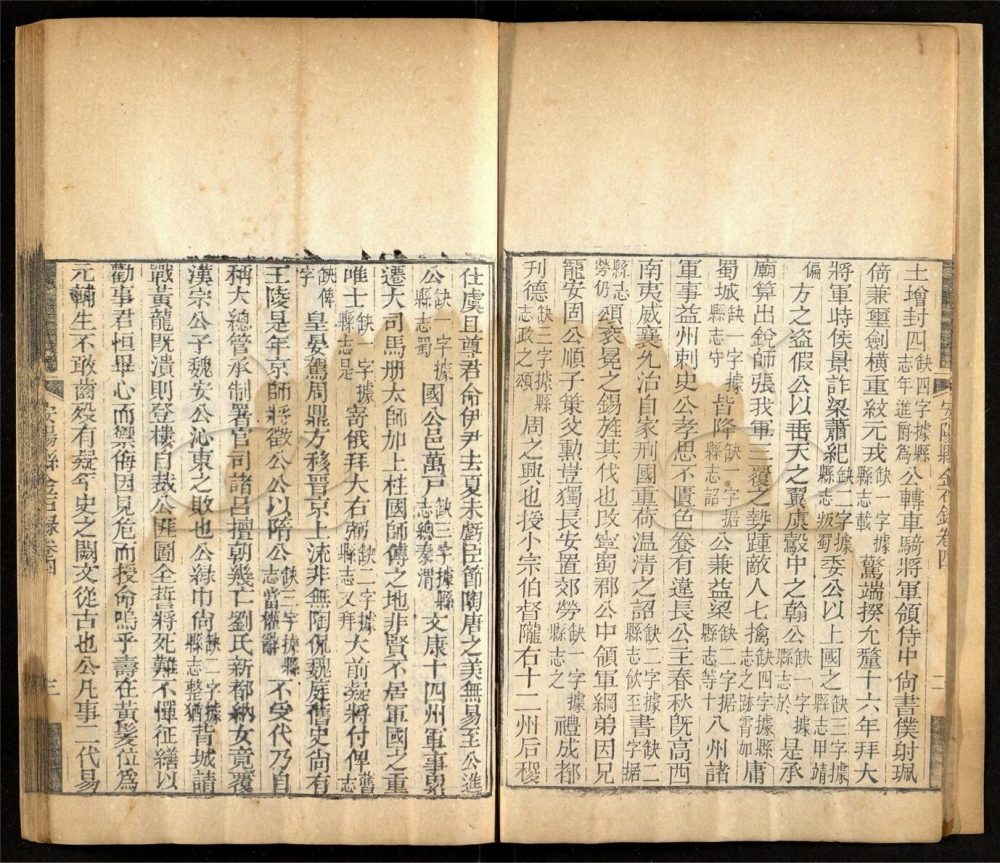 土增封四缺四字據縣志年進爵爲公轉車騎將軍領侍中尚書僕射珮
倍兼璽劍橫重紋元戎缺一字據縣志載驚端揆允釐十六年拜大
將軍時侯景詐梁蕭紀缺二字據縣志叛蜀委公以上國之缺三字據縣志甲靖
偏方之盜假公以垂天之翼虞彀中之翰公缺一字據縣志於是承
廟算出銳師張我軍三覆之勢踵敵人七擒缺四字據縣志之跡霄加庸
蜀城缺一字據縣志守皆降缺一字据縣志詔公兼益梁缺二字據縣志等十八州諸
軍事益州刺史公孝思不匱色養有違長公主春秋旣高西
南夷威襄允治自家刑國重荷温清之詔缺二字據縣志飲至書缺二字据
縣志勞仍頌袞冕之錫旌其伐也改寧蜀郡公中領軍綱弟因兄
寵安固公順子策父勳豈獨長安置郊勞缺一字據縣志之禮成都
刋德缺三字據縣志政之頌周之興也授小宗伯督隴右十二州后稷
安陽縣金石錄卷四
二
仕虞且尊君命伊尹去夏未虧臣節陶唐之美無易至公進
公缺一字據縣志蜀國公邑萬戸缺三字據縣志總秦渭文康十四州軍事累
遷大司馬册太師加上柱國師傅之地非賢不居軍國之重
唯士缺一字據縣志是寄俄拜大右弼缺二字據縣志又拜大前疑將付俾舊志
缺俾字皇晏駕周鼎方移晉京上流非無陶侃魏庭舊史尚有
王陵是年京師將徵公公以隋公缺三字據縣志當權辭不受代乃自
稱大總管承制署官司諸呂擅朝幾亡劉氏新都納女竟覆
漢宗公子魏安公沁東之敗也公綠巾尙缺二字據縣志整猶背城請
戰黃龍旣潰則登樓自裁公匪圖全誓將死難不憚征繕以
勸事君恒畢心而禦侮因見危而授命嗚乎壽在黃髮位爲
元輔生不敢齒殁有疑年史之闕文從古也公凡事二代易
安陽縣金石錄卷四
三